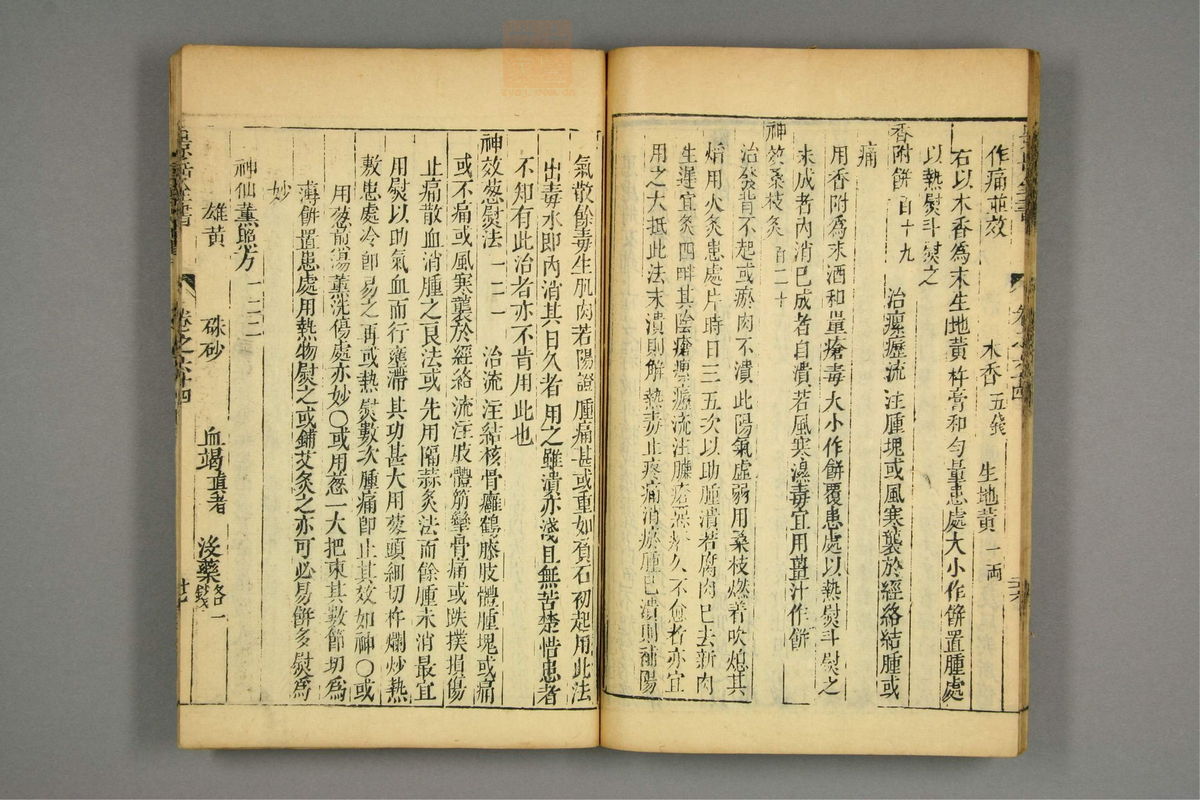 作痛並效
木香 五錢 生地黃 一両
右以木香爲末生地黃杵膏和勻量患處大小作餅置腫處
以熱熨斗熨之
香附餅 百十九 治瘰癧流注腫塊或風寒襲於經絡結腫或
痛
用香附爲末酒和量瘡毒大小作餅覆患處以熱熨斗熨之
未成者內消已成者自潰若風寒濕毒宜用薑汁作餅
神效桑枝灸 百二十
治發背不起或瘀肉不潰此陽氣虛弱用桑枝燃着吹熄其
焰用火灸患處片時日三五次以助腫潰若腐肉已去新肉
生遲宜灸四畔其陰瘡瘰癧流注臁瘡惡瘡久不愈者亦宜
用之大抵此法未潰則解熱毒止疼痛消瘀腫已潰則補陽
氣散餘毒生肌肉若陽證腫痛甚或重如負石初起用此法
出毒水即內消其日久者用之雖潰亦淺且無苦楚惜患者
不知有此治者亦不肯用此也
神效葱熨法 一二一 治流注結核骨癰鶴膝肢體腫塊或痛
或不痛或風寒襲於經絡流注肢體筋攣骨痛或跌撲損傷
止痛散血消腫之良法或先用隔蒜灸法而餘腫未消最宜
用熨以助氣血而行壅滯其功甚大用葱頭細切杵爛炒熱
敷患處冷卽易之再或熱熨數次腫痛卽止其效如神〇或
用葱煎湯薰洗傷處亦妙〇或用葱一大把束其數節切爲
薄餅置患處用熱物熨之或鋪艾灸之亦可必易餅多熨爲
妙
神仙薰照方 一二二
雄黃 硃砂 血竭 真者 沒藥 各一錢
卷之六十四